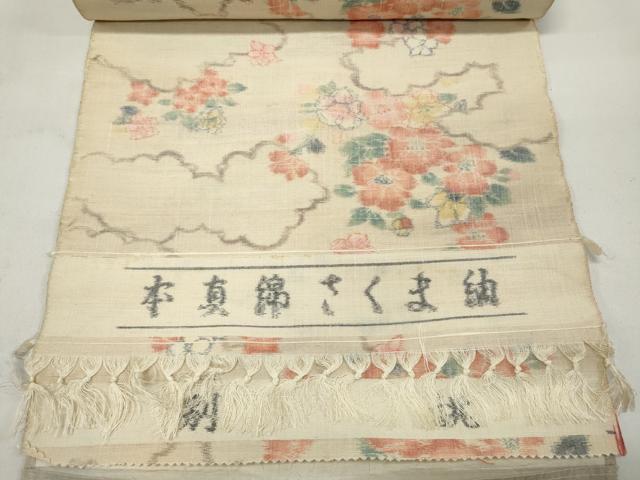 本真綿さくま紬